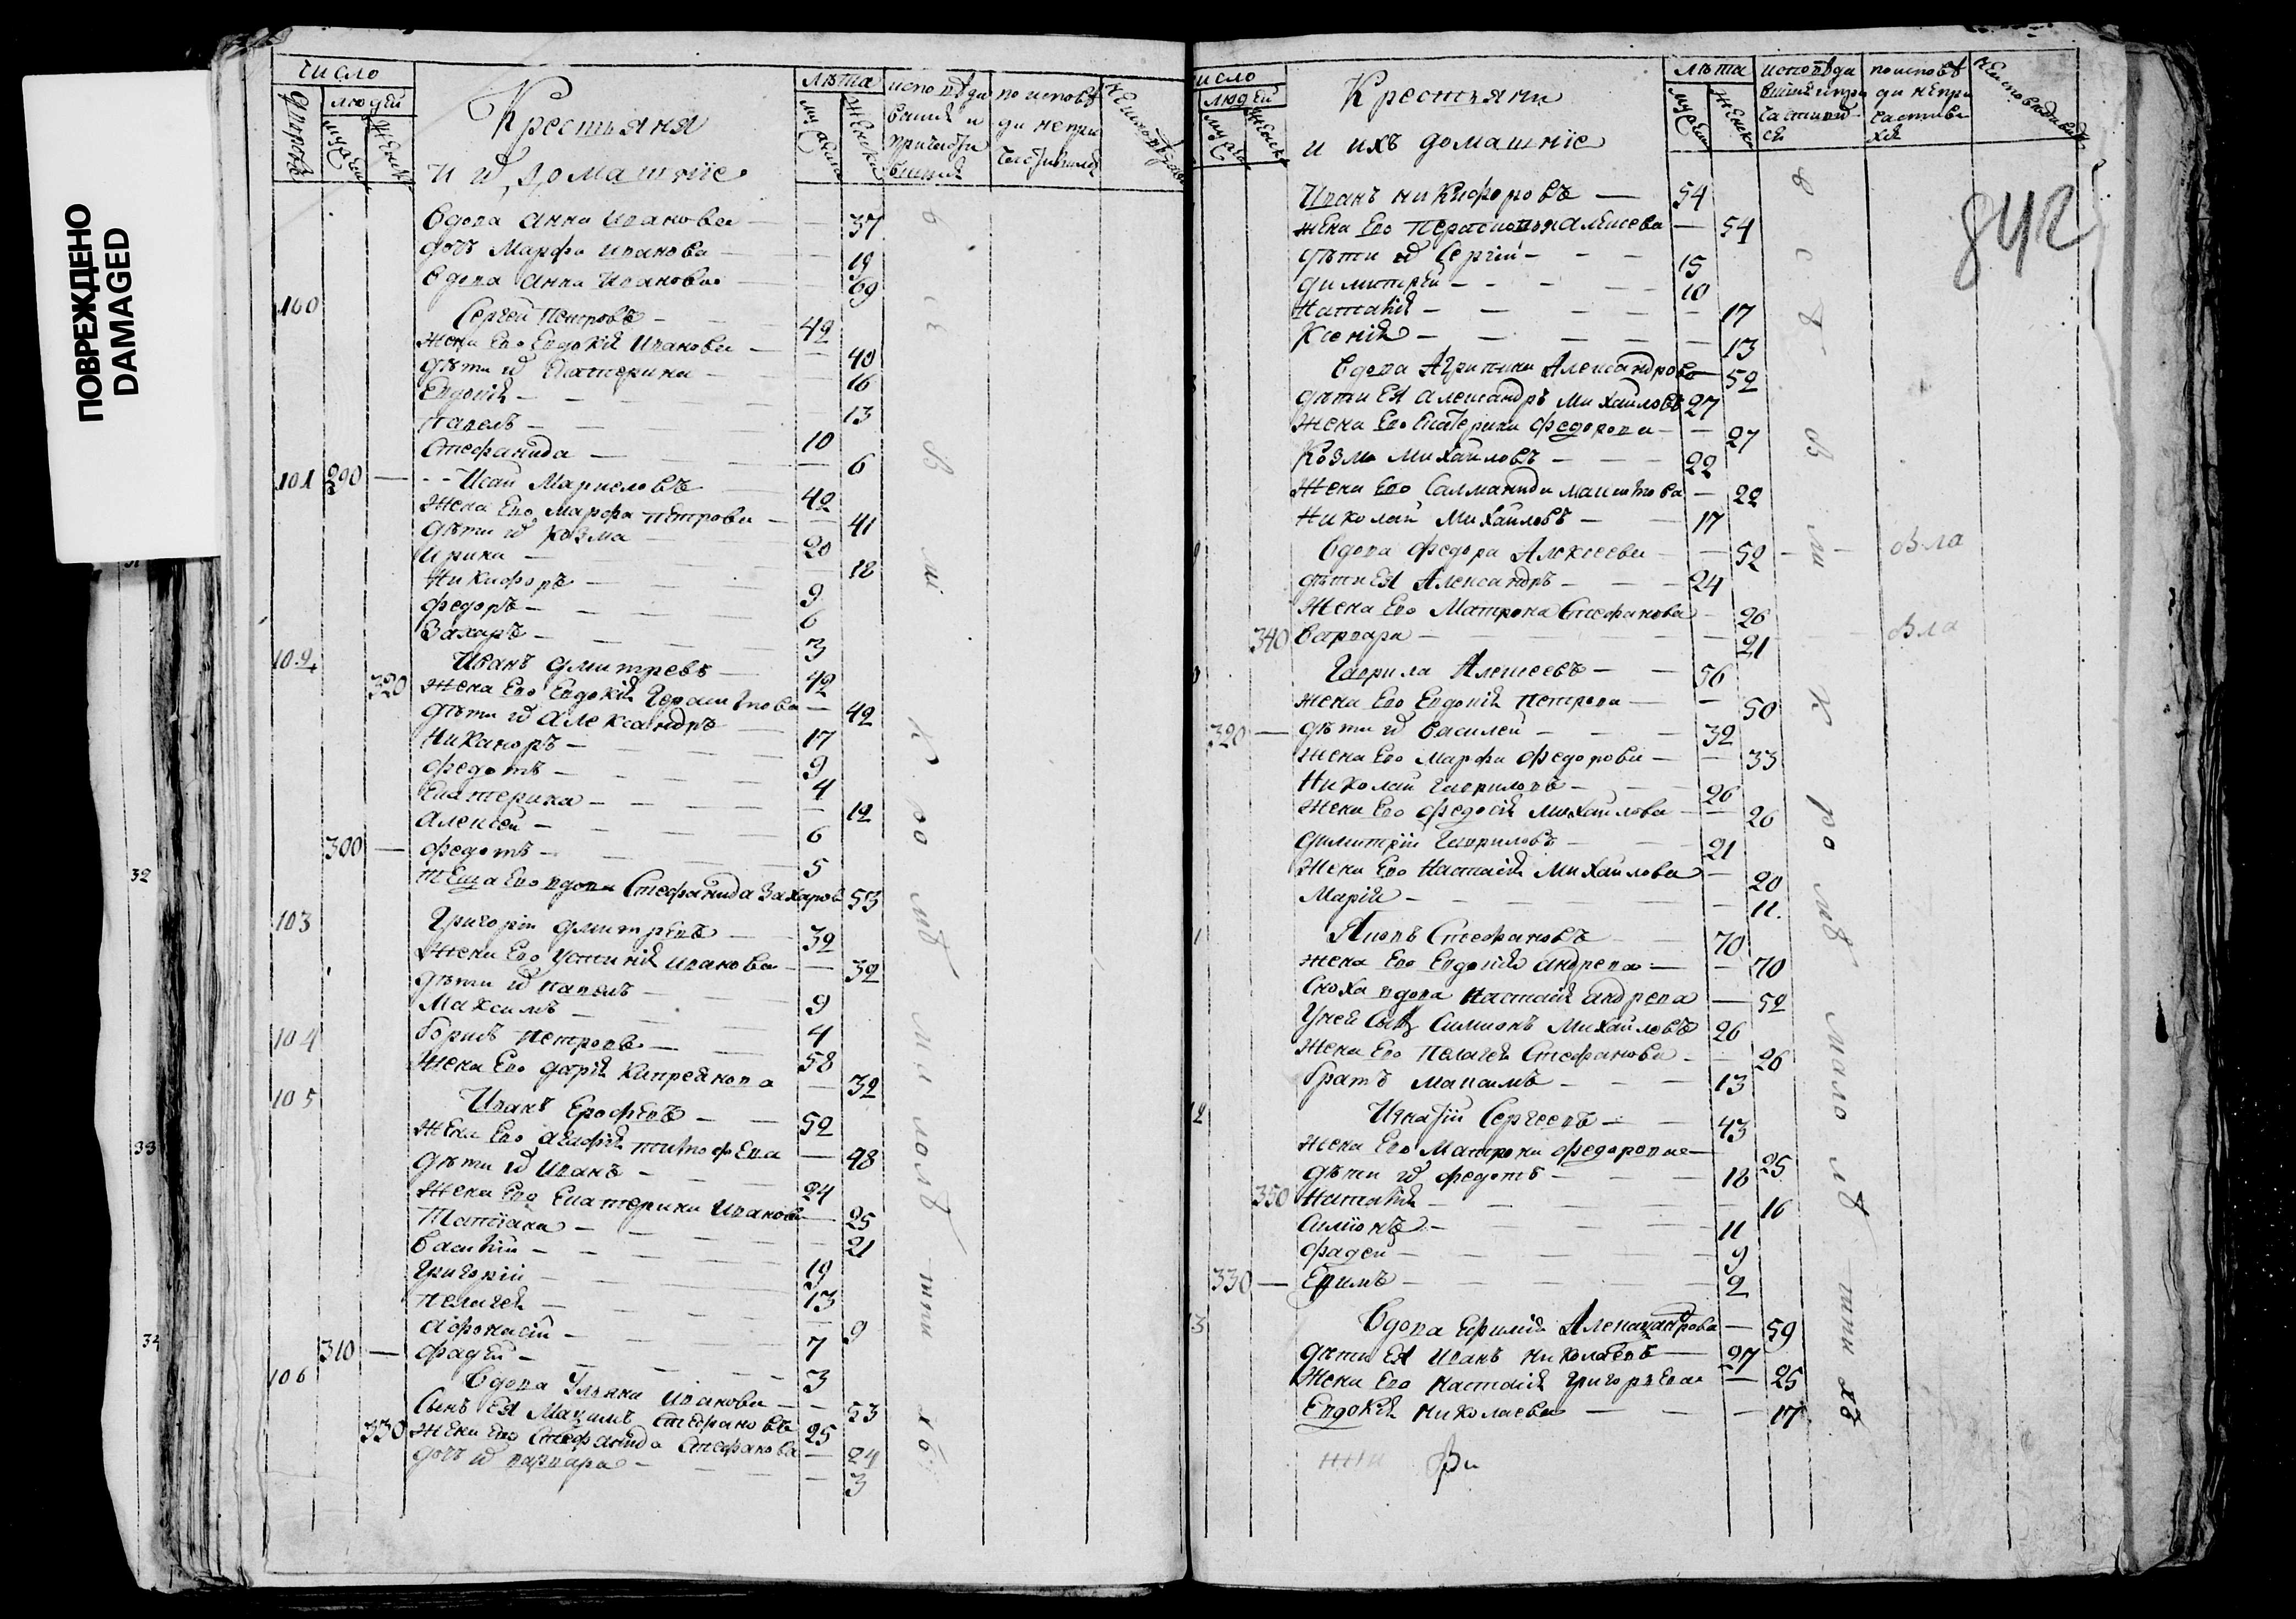 ПОВРЕЖДЕНО
DAMAGED
число
дворовъ
людей
мужска
женска
Крестьяня
и и домашнїе
лѣта
мужска
женска
исповѣда
вшихся и
причасти
вшихся
по исповѣ
ди непри
Вдова Анна Иванова — — 37
дочь Марфа Иванова — — 19
Вдова Анна Иванова — — 69
100 Сергей Петровъ — 42
жена Ево Евдокія Иванова — 40
дѣти и Екатерина — 16
Евдокія — 13
Павелъ — 10
Стефанида — 6
101 290 — Исай Маркеловъ 42
жена Ево Марфа Петрова — 41
дѣти и Козма 20
Ирина — 18
Никифоръ — 9
Федоръ — 6
Захаръ — 3
102 Иванъ Дмитревъ 42
320 жена Ево Евдокія Герасимова — 42
дѣти и Александръ 17
Никаноръ — 9
Федотъ — 4
Екатерина — 12
Алексей — 6
300 — Федотъ — 5
теща Ево вдова Стефанида Захаров 53
103 Григорїй Дмитревъ 32
жена Ево Устинія Иванова — 32
дѣти и Павелъ 9
Максимъ — 4
104 Борисъ Петровъ — 58
жена Ево Дарія — 32
105 Иванъ Ерофевъ — 52
жена Ево Агафія Тимофева — 48
дѣти и Иванъ — 24
жена Ево Екатерина Иванова — 25
Татїана — 21
Василїй — 19
Григорїй — 13
Пелагея — 9
Афонасїй — 7
310 — Фадей — 3
106 Вдова Ульяна Иванова — 53
Сынъ Ея Максимъ Стефановъ 25
330 жена Ево Стефанида Стефанова — 24
дочь и Варвара — 3
число
людей
мужска
женска
Крестьяни
и ихъ домашнїе
лѣта
мужска
женска
исповѣда
вшихся и при
частив
ся
по исповѣ
ди непри
частив
хся
842
Иванъ Никифоровъ — 54
жена Ево Парасковья Алексеева — 54
дѣти и Сергїй — 15
Димитрей — 10
Наталія — 17
Ксенія — 13
Вдова Агрипина Александрова — 52
дѣти Ея Александръ Михайловъ 27
жена Ево Екатерина Федорова — 27
Козма Михайловъ — 22
жена Ево Саламанида — 22
Николай Михайловъ — 17
Вдова Федора Алексеева — 52 — — была
дѣти Ея Александръ — 24
жена Ево Матрона Стефанова — 26
340 Варвара — 21 — была
Гаврила Алексеевъ — 56
жена Ево Евдокія Петрова — 50
320 — дѣти и Василей — 32
жена Ево Марфа Федорова — 33
Николай Гавриловъ — 26
жена Ево Федосія Михайлова — 26
Димитрїй Гавриловъ — 21
жена Ево Настасія Михайлова — 20
Марія — 11
1 Яковъ Стефановъ 70
жена Ево Евдокія Андрева — 70
Сноха вдова Настасія Андрева — 52
У ней Сынъ Симионъ Михайловъ 26
жена Ево Пелагея Стефанова — 26
братъ Максимъ — 13
12 Игнатїй Сергеевъ — 43
жена Ево Матрона Федорова — 25
дѣти и Федотъ — 18
350 Наталія — 16
Симїонъ — 11
Фадей — 9
330 — Ефимъ — 2
3 Вдова Ефимія Александрова — 59
дѣти Ея Иванъ Николаевъ — 27
жена Ево Настасія Григорьева — 25
Евдокія Николаева — 17